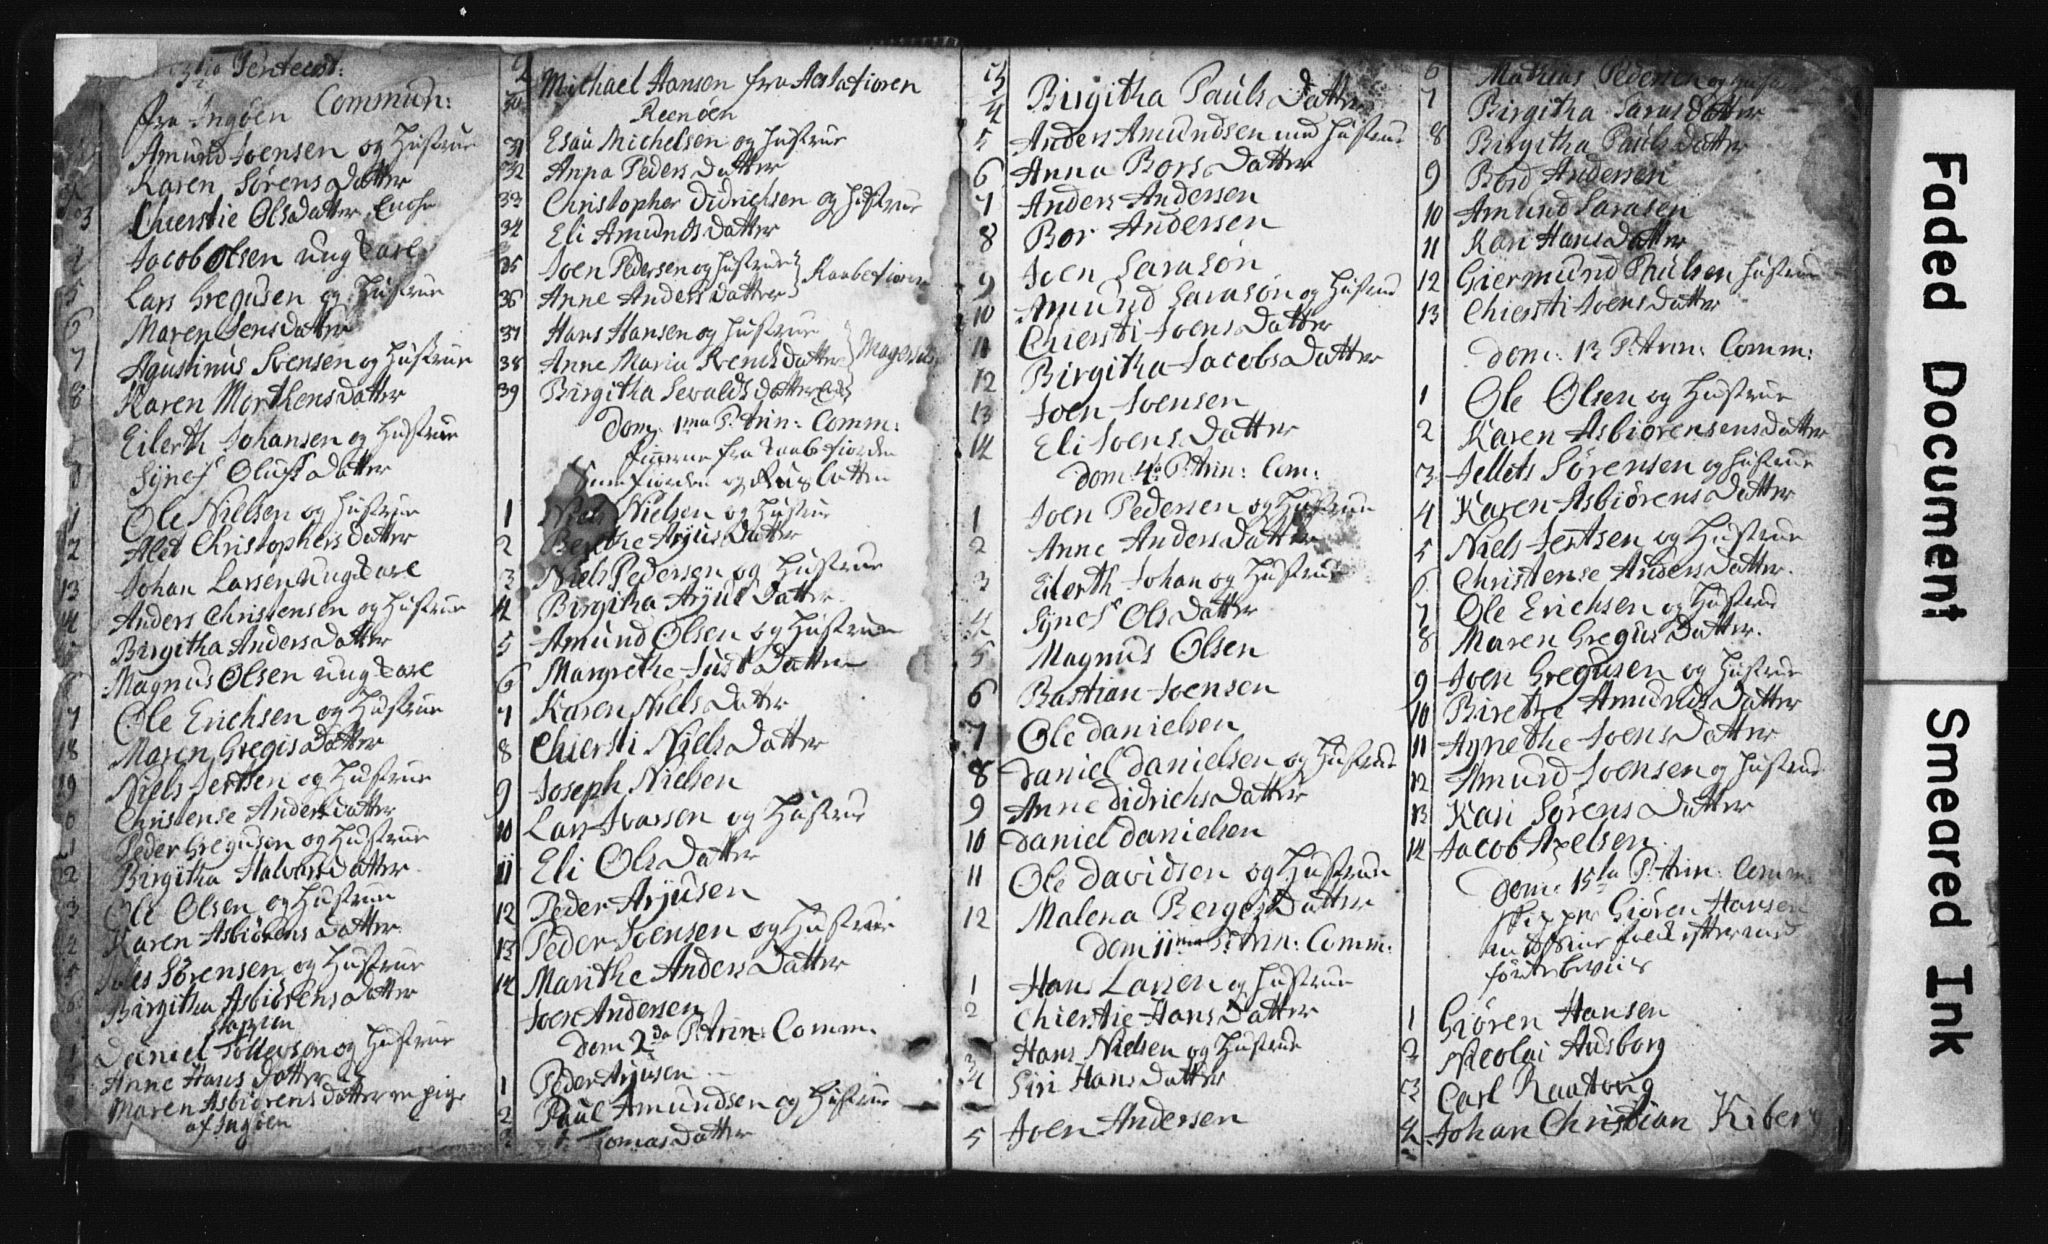 3tia Pentecost:
fra Ingøen Commun:
Amund Joensen og Hustrue
Karen Sørens Datter
3 Chierstie Ols Datter Enche
Jacob Olsen ung Karl
5 Lars Gregusen og Hustrue
6 Maren Jens Datter
7 Agustinus Svensen og Hustrue
8 Karen Morthens Datter
Eilerth Johansen og Hustrue
Synef Oluffs Datter
1 Ole Nielsen og Hustrue
2 Alet Christophers Datter
13 Johan Larsen ung Karl
14 Anders Christensen og Hustrue
Birgitha Anders Datter
Magnus Olsen ung Karl
7 Ole Erichsen og Hustrue
18 Maren Gregis Datter
19 Niels Jertsen og Hustrue
0 Christense Anders Datter
1 Peder Gregusen og Hustrue
22 Birgitha Halvors Datter
3 Ole Olsen og Hustrue
4 Karen Asbiørens Datter
5 Sørensen og Hustrue
6 Birgitha Asbiørens Datter
Daniel Tollevsen og Hustrue
Anne Hans Datter
Maren Asbiørens Datter en pige
af Ingøen
30 Michael Hansen fra
Reenøen
31 Esau Michelsen og Hustrue
32 Anna Peders Datter
33 Christopher Didrichsen og Hustrue
34 Eli Amunds Datter
35 Joen Pedersen og Hustrue
36 Anne Anders Datter
37 Hans Hansen og Hustrue
38 Anne Maria Svends Datter
39 Birgitha Sevalds Datter
Dom: 1ma P: Trin: Comm:
finerne fra
og
1 Niels Nielsen og Hustrue
2 Berethe Arjus Datter
3 Niels Pedersen og Hustrue
4 Birgitha Arjus Datter
5 Amund Olsen og Hustrue
6 Margrethe Just Datter
7 Karen Niels Datter
8 Chiersti Niels Datter
9 Joseph Nielsen
10 Lars Ivarsen og Hustrue
11 Eli Ols Datter
12 Peder Arjusen
13 Peder Joensen og Hustrue
14 Marithe Anders Datter
Joen Andersen
Dom 2da P: Trin: Comm.
1 Peder Arjusen
2 Paul Amundsen og Hustrue
Tomas Datter
4 Birgitha Pauls Datter
5 Anders Amundsen med Hustrue
6 Anna Bors Datter
7 Anders Andersen
8 Bor Andersen
9 Joen Sarasøn
10 Amund Sarasøn og Hustrue
11 Chiersti Joens Datter
12 Birgitha Jacobs Datter
13 Joen Joensen
14 Eli Joens Datter
Dom: 4ta P: Trin: Com:
1 Joen Pedersen og Hustrue
2 Anne Anders Datter
3 Eilerth Johan og Hustrue
4 Synef Ols Datter
5 Magnus Olsen
6 Bastian Joensen
7 Ole Danielsen
8 Daniel Danielsen og Hustrue
9 Anne Didrichs Datter
10 Daniel Danielsen
11 Ole Davidsen og Hustrue
12 Malena Bergers Datter
Dom 11ma P: Trin: Comm:
1 Hans Larsen og Hustrue
2 Chierstie Hans Datter
3 Hans Nielsen og Hustrue
4 Siri Hans Datter
5 Joen Andersen
6 Mathias Pedersen og Hustrue
7 Birgitha Saras Datter
8 Birgitha Pauls Datter
9 Bord Andersen
10 Amund Sarasen
11 Kari Hans Datter
12 Giermund Paulsen Hustrue
13 Chiersti Joens Datter
Dom: 12 P: Trin: Comm:
1 Ole Olsen og Hustrue
2 Karen Asbiørensens Datter
3 Jellets Sørensen og Hustrue
4 Karen Asbiørens Datter
5 Niels Jertsen og Hustrue
6 Christense Anders Datter.
7 Ole Erichsen og Hustrue
8 Maren Gregus Datter.
9 Joen Gregusen og Hustrue
10 Birethe Amunds Datter
11 Agnethe Joens Datter
12 Amund Joensen og Hustrue
13 Kari Sørens Datter
14 Jacob Axelsen
Dom: 15ta P: Trin: Comm:
Skipper Giøren Hansen
folk efter
1 Giøren Hansen
2 Nicolai Ausborg
3 Carl Raatorig
4 Johan Christian Kiberg
Faded Document
Smeared Ink